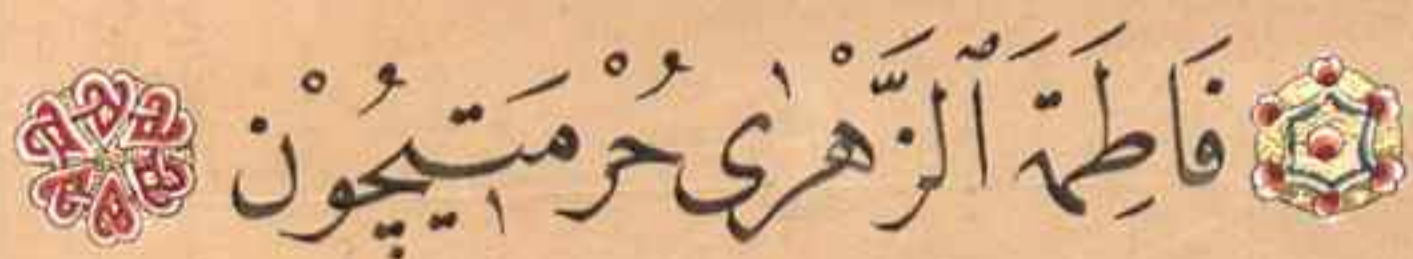 فَاطِمَةَ ٱلزَّهْرٰى حُرْمَتِيچُوْن